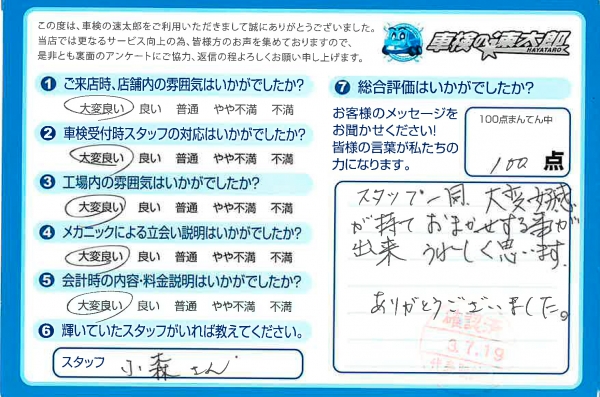 この度は、車検の速太郎をご利用いただきまして誠にありがとうございました。
当店では更なるサービス向上の為、皆様方のお声を集めておりますので、
是非とも裏面のアンケートにご協力、返信の程よろしくお願い申し上げます。
車検の速太郎
HAYATARO
1 ご来店時、店舗内の雰囲気はいかがでしたか?
大変良い 良い 普通 やや不満 不満
2 車検受付時スタッフの対応はいかがでしたか?
大変良い 良い 普通 やや不満 不満
3 工場内の雰囲気はいかがでしたか?
大変良い 良い 普通 やや不満 不満
4 メカニックによる立会い説明はいかがでしたか?
大変良い 良い 普通 やや不満 不満
5 会計時の内容・料金説明はいかがでしたか?
大変良い 良い 普通 やや不満 不満
6 輝いていたスタッフがいれば教えてください。
スタッフ 小森さん
7 総合評価はいかがでしたか?
お客様のメッセージを
お聞かせください!
皆様の言葉が私たちの
力になります。
100点まんてん中
100 点
スタッフ一同、大変好感
が持て おまかせする事が
出来 うれしく思います。
ありがとうございました。
確認済
3.7.19